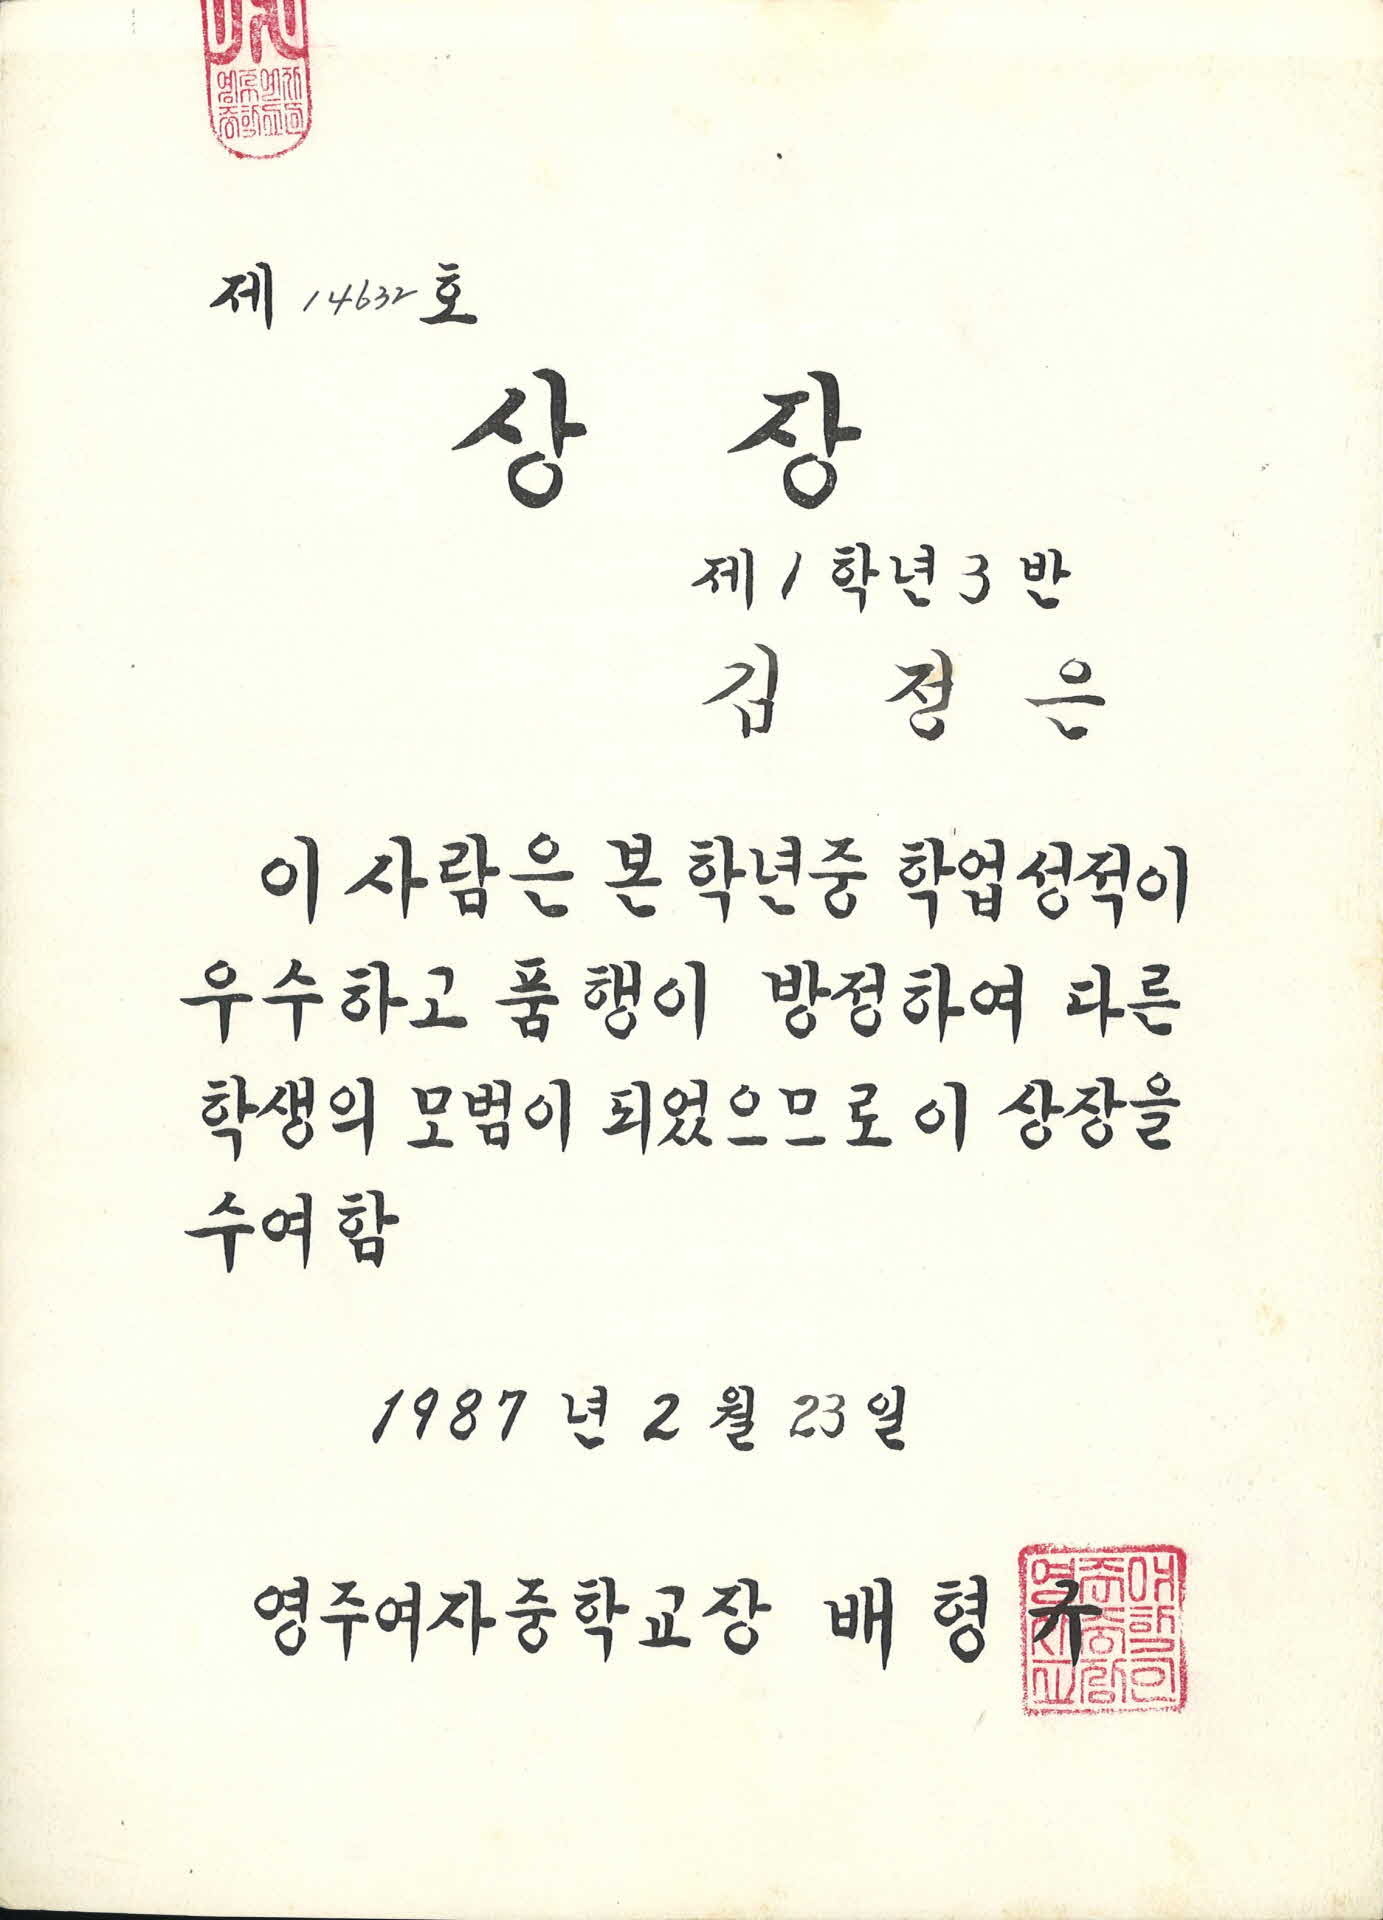 제 14632 호
상 장
제 1 학년 3 반
김 정 은
이 사람은 본 학년중 학업성적이
우수하고 품행이 방정하여 다른
학생의 모범이 되었으므로 이 상장을
수여함
1987 년 2 월 23 일
영주여자중학교장 배 형 규